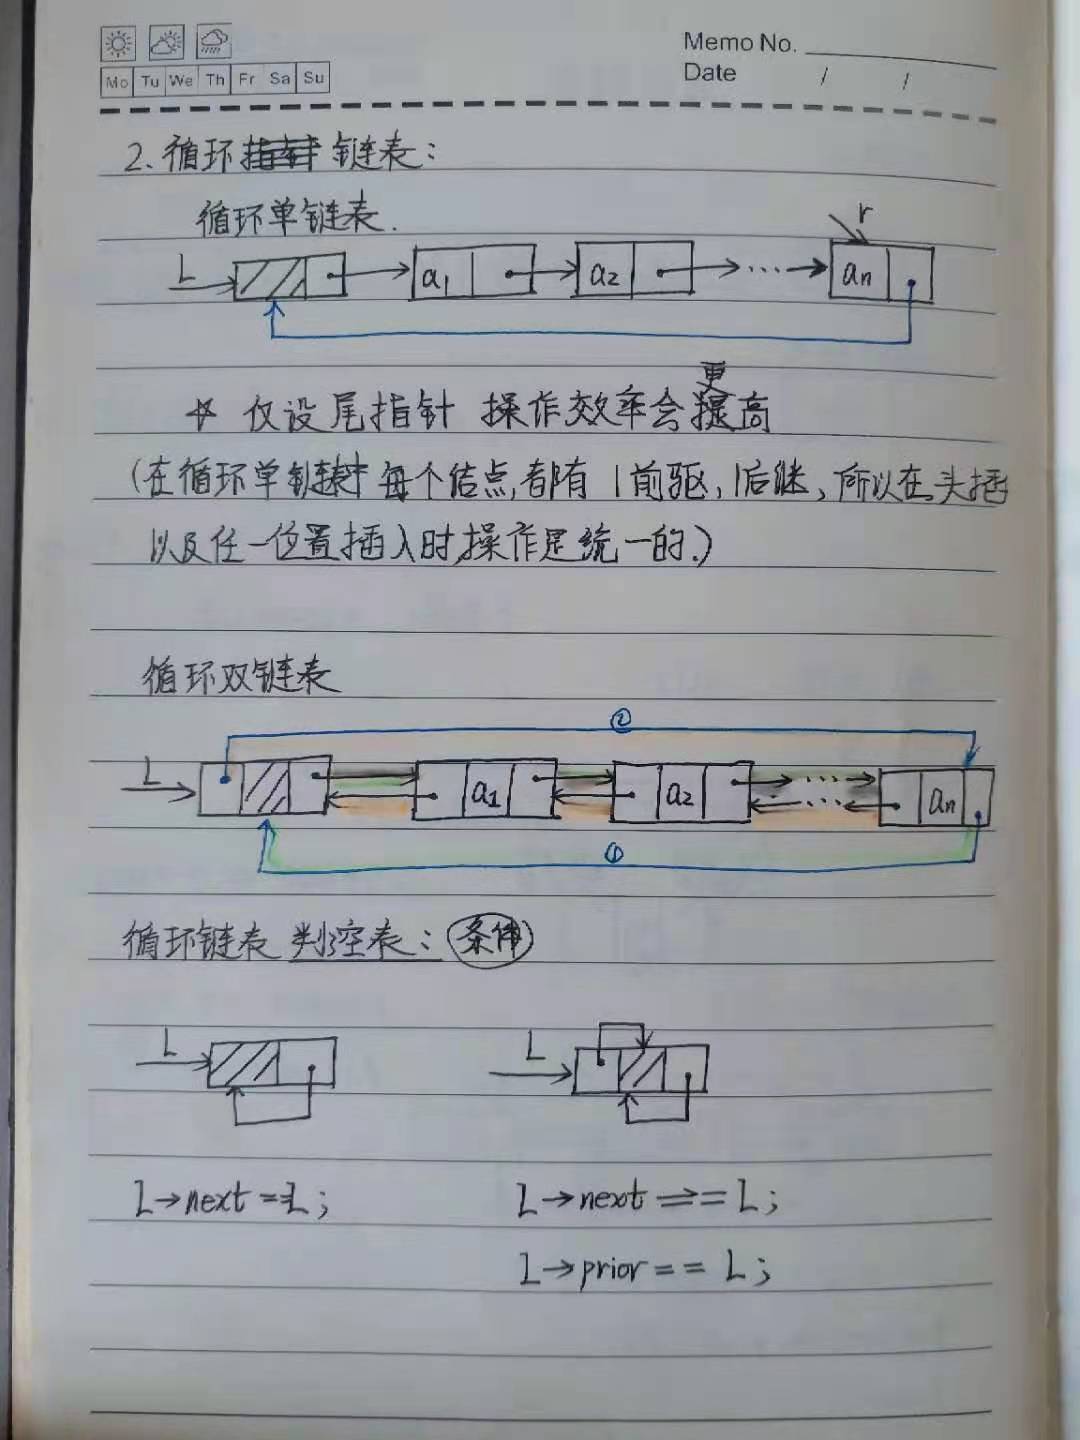 Memo No.
Mo Tu We Th Fr Sa Su
Date / /
2.循环指针链表：
循环单链表.
r
L a1 a2 ... an
更
☆ 仅设尾指针 操作效率会提高
(在循环单链表中每个结点,都有1前驱,1后继,所以在头插
以及任一位置插入时,操作是统一的.)
循环双链表
②
L a1 a2 ... an
①
循环链表 判空表：条件
L L
L→next==L；
L→next==L；
L→prior==L；